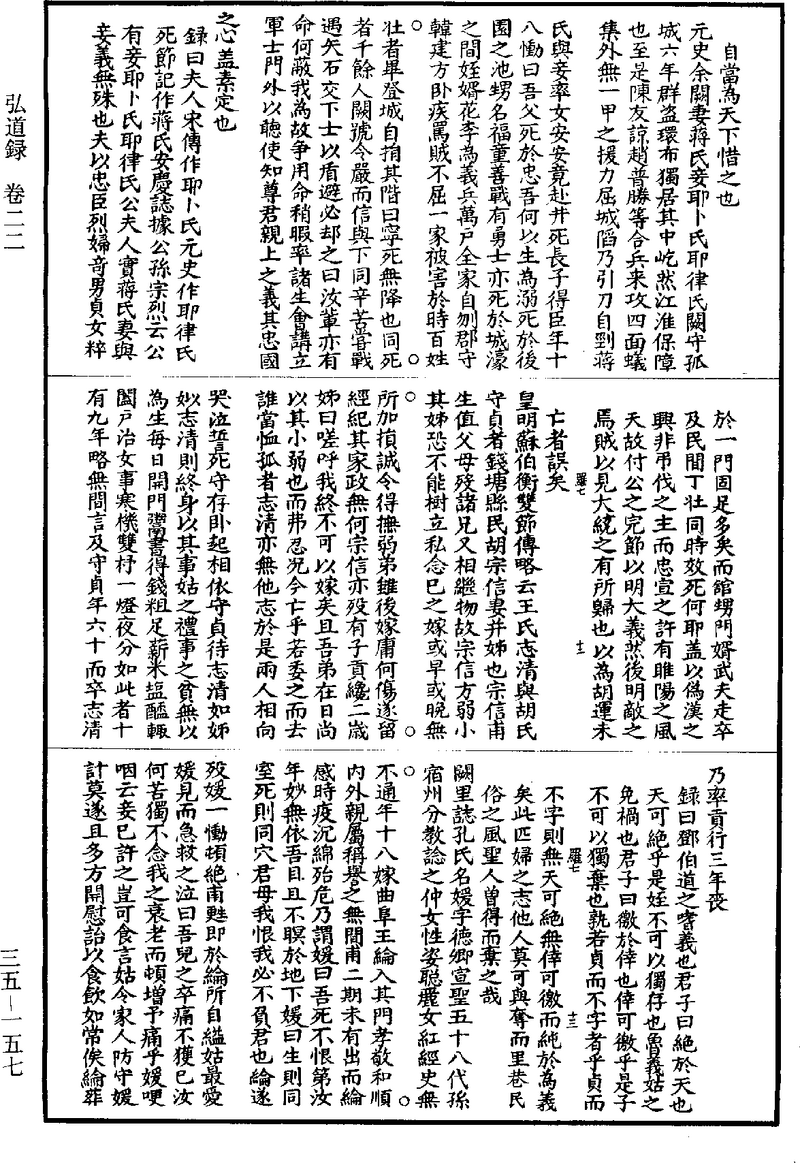 弘道録　卷二二
三五－一五七
自當為天下惜之也
元史余闕妻蔣氏妾耶卜氏耶律氏闕守孤
城六年群盗環布獨居其中屹然江淮保障
也至是陳友諒趙普勝等合兵来攻四面蟻
集外無一甲之援力屈城陷乃引刀自剄蔣
氏與妾率女安安竟赴井死長子得臣年十
八慟曰吾父死於忠吾何以生為溺死於後
園之池甥名福童善戰有勇士亦死於城濠
之間姪婿花李為義兵萬戸全家自刎郡守
韓建方卧疾罵賊不屈一家被害於時百姓
壮者畢登城自捐其階曰寧死無降也同死
者千餘人闕號令嚴而信與下同辛苦甞戰
遇矢石交下士以盾避必却之曰汝輩亦有
命何蔽我為故争用命稍暇率諸生會講立
軍士門外以聽使知尊君親上之義其忠國
之心盖素定也
録曰夫人宋傳作耶卜氏元史作耶律氏
死節記作蔣氏安慶誌據公孫宗烈云公
有妾耶卜氏耶律氏公夫人實蔣氏妻與
妾義無殊也夫以忠臣烈婦竒男貞女粹
於一門固足多矣而舘甥門婿武夫走卒
及民間丁壮同時效死何耶盖以偽漢之
興非弔伐之主而忠宣之許有睢陽之風
天故付公之完節以明大義然後明敵之
焉賊以見大統之有所歸也以為胡運未
亡者誤矣
皇明蘇伯衡雙節傳略云王氏志清與胡氏
守貞者錢塘縣民胡宗信妻并姊也宗信甫
生值父母殁諸兄又相繼物故宗信方弱小
其姊恐不能樹立私念已之嫁或早或晚無
所加損誠令得撫弱弟雖後嫁庸何傷遂留
經紀其家政無何宗信亦殁有子貢纔二歳
姊曰嗟呼我終不可以嫁矣且吾弟在日尚
以其小弱也而弗忍况今亡乎若委之而去
誰當恤孤者志清亦無他志於是兩人相向
哭泣誓死守存卧起相依守貞待志清如姊
姒志清則終身以其事姑之禮事之貧無以
為生毎日開門鬻書得錢粗足薪米塩醯輙
闔戸治女事寒機雙杼一燈夜分如此者十
有九年略無間言及守貞年六十而卒志清
乃率貢行三年喪
録曰鄧伯道之嗜義也君子曰絶於天也
天可絶乎是姪不可以獨存也魯義姑之
免禍也君子曰徼於倖也倖可徼乎是子
不可以獨棄也孰若貞而不字者乎貞而
不字則無天可絶無倖可徼而純於為義
矣此匹婦之志他人莫可與奪而里巷民
俗之風聖人曽得而棄之哉
闕里誌孔氏名媛字德卿宣聖五十八代孫
宿州分教諗之仲女性姿聰麗女紅經史無
不通年十八嫁曲阜王綸入其門孝敬和順
内外親屬稱譽之無間甫二期未有出而綸
感時疫沉綿殆危乃謂媛曰吾死不恨第汝
年妙無依吾目且不瞑於地下媛曰生則同
室死則同穴君母我恨我必不負君也綸遂
殁媛一慟頓絶甫甦即於綸所自縊姑最愛
媛見而急救之泣曰吾兒之卒痛不獲已汝
何苦獨不念我之衰老而頓增予痛乎媛哽
咽云妾已許之豈可食言姑令家人防守媛
計莫遂且多方開慰詒以食飲如常俟綸葬